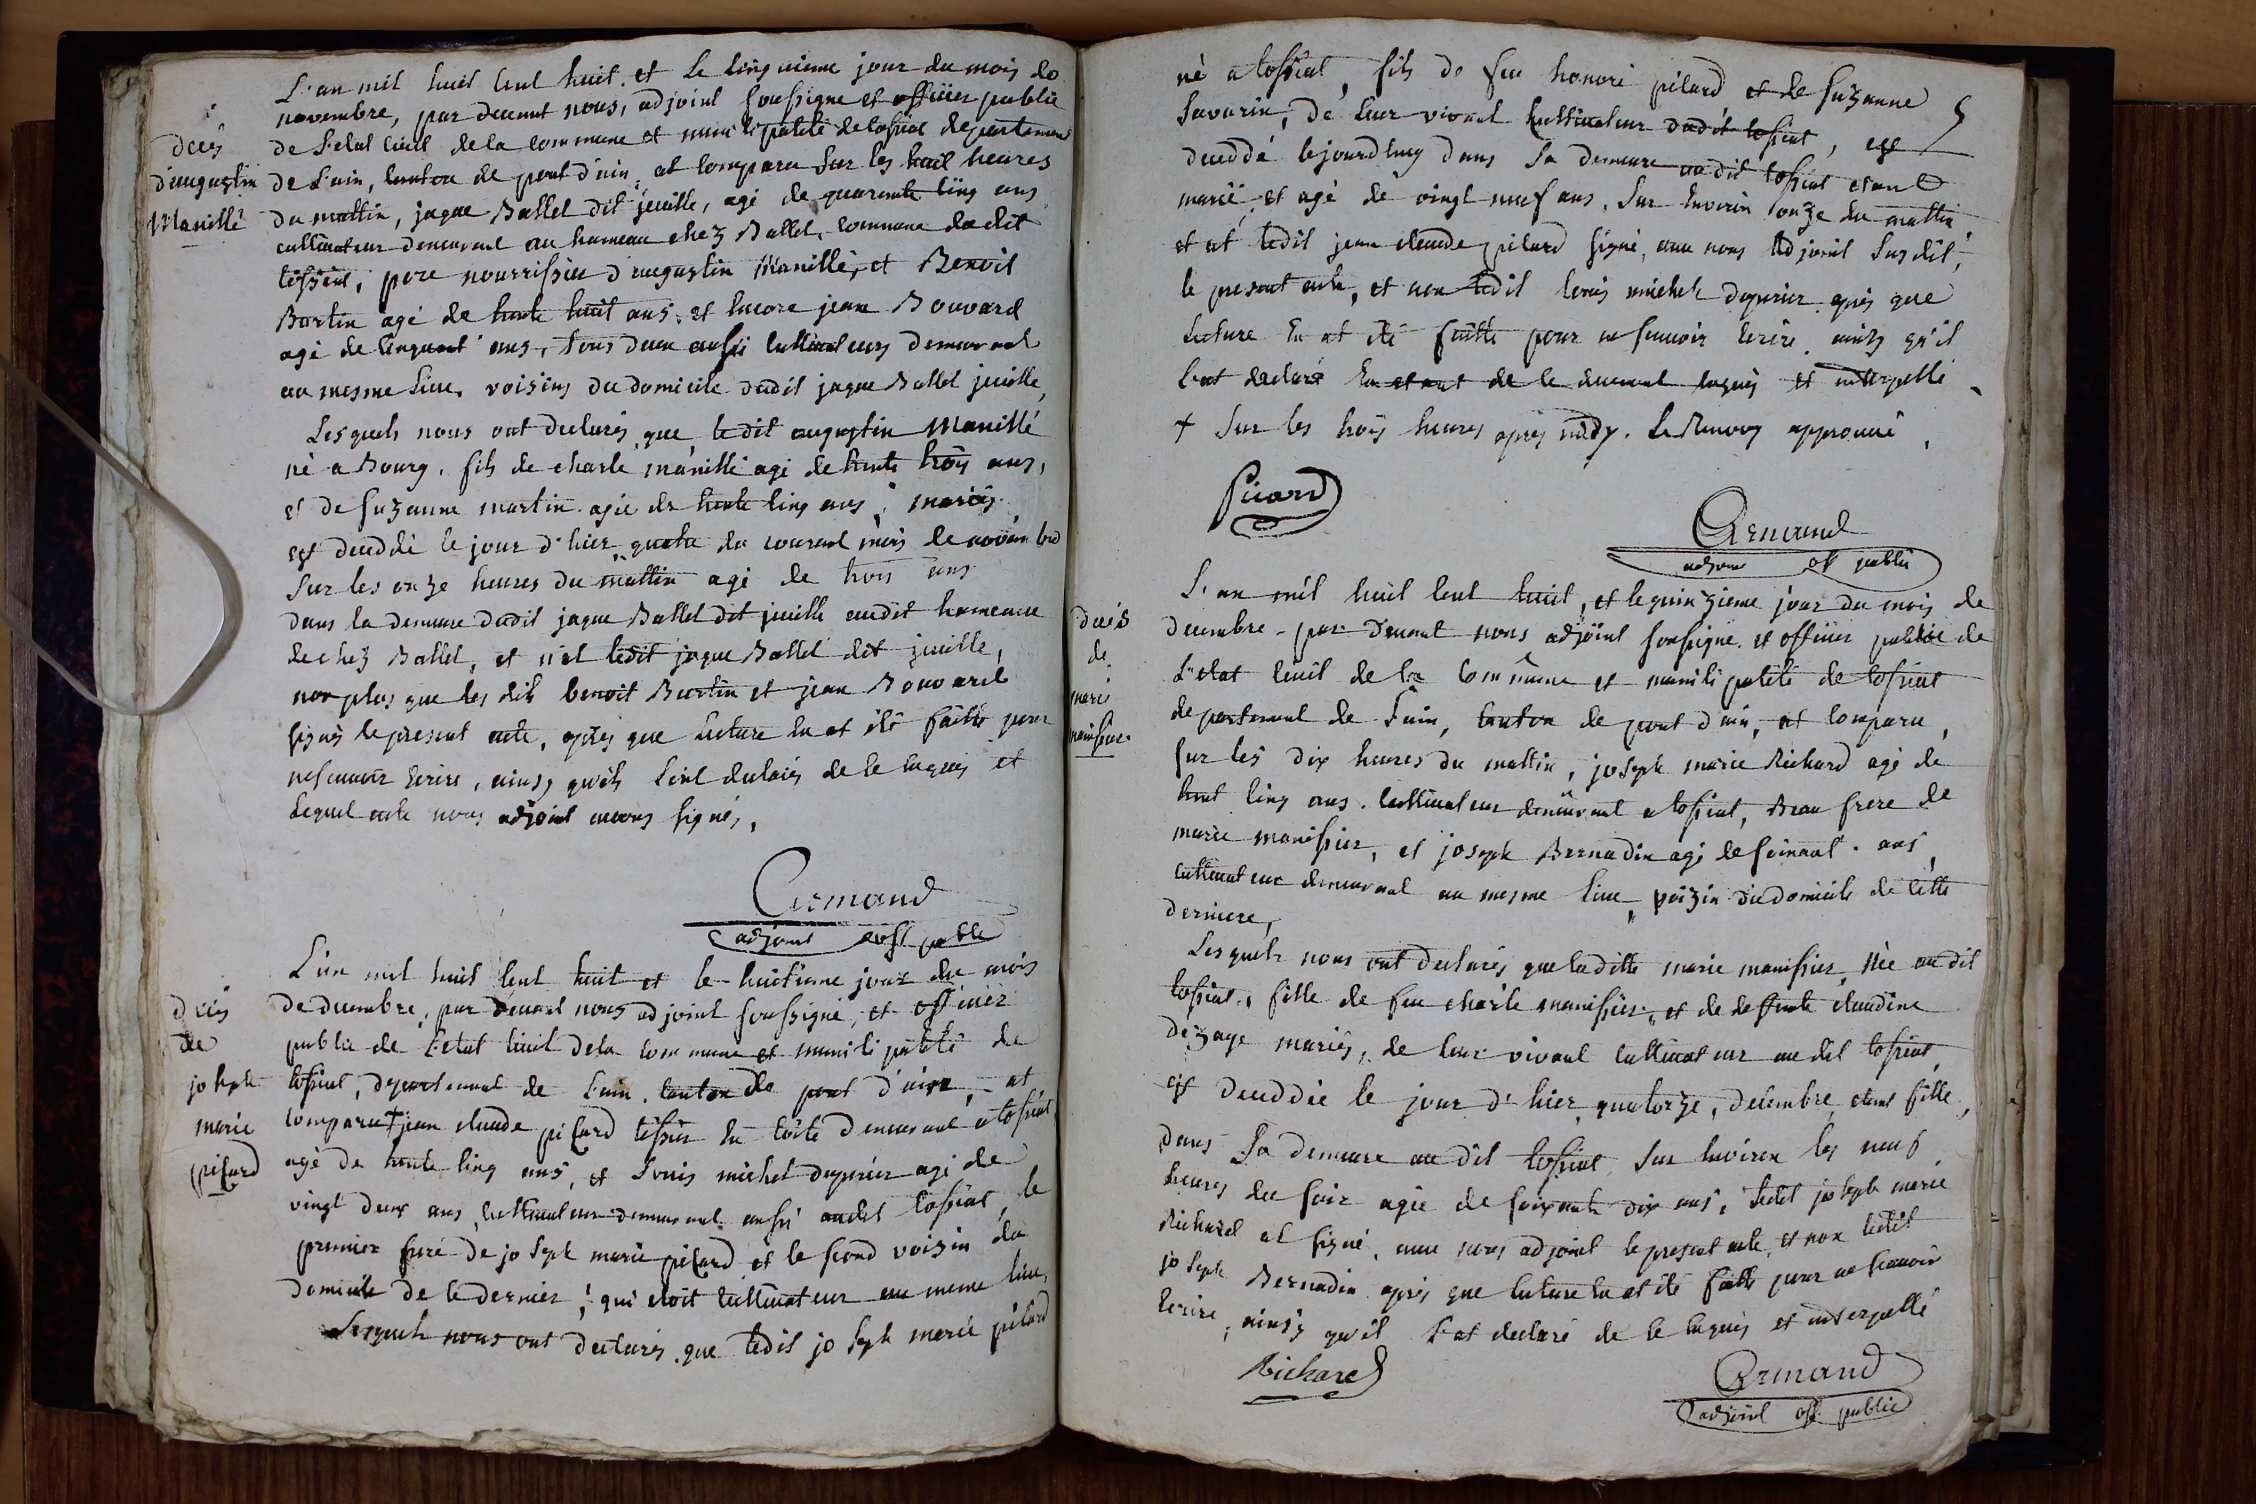 L'an mil huit cent huit. et le cinquieme jour du mois de
novembre, par devant nous, adjoint soussigne et officier public
de l'etat civil de la commune et municipalité de tossiat departement
de l'ain, canton de pont d'ain, at comparu sur les huit heures
du mattin, jaque Ballet dit juille, agé de quarante cinq ans
cultivateur demeurant au hameau chez Ballet, commune dudit
tossiat, pere nourrissier d'augustin Manillé, et Benoit
Burtin agé de trente huit ans. et encore jean Bouvard
agé de cinquant ans, tous deux aussi cultivateurs demeurant
au mesme lieu, voisins du domicile dudit jaque Ballet juille,
Lesquels nous ont declarés, que ledit augustin Manillé
né a Bourg. fils de charle manillé agé de trente trois ans,
et de suzanne martin agée de trente cinq ans, mariés,
est deceddé le jour d'hier, quatre du courant mois de novembre
sur les onze heures du mattin agé de trois ans
dans la demeure dudit jaque Ballet dit juille audit hameaux
de chez Ballet, et n'at ledit jaque Ballet dit juille,
non plus que les dits benoit Burtin et jean Bouvard
signés le present acte, après que lecture en at été faitte pour
ne scauvoir ecrire, ainsy qu'ils l'ont declarés de ce enquis et
Lequel acte nous adjoint avons signés,
Armand
adjoint et off public
decés
d'augustin
Manillé
L'an mil huit cent huit et le huitieme jour du mois
de decembre, par devant nous adjoint soussigné, et officier
public de l'etat civil de la commune et municipalité de
tossiat, departement de l'ain, canton de pont d'ain, at
comparu + jean claude picard tissier en toile demeurant a tossiat,
agé de trente cinq ans, et louis michel duprier agé de
vingt deux ans cultivateur demeurant aussi audit tossiat, le
premier frere de joseph marie picard et le second voizin du
domicile de ce dernier, qui etoit cultivateur au meme lieu,
Lesquels nous ont declarés que ledit joseph marie picard
decés
de
joseph
marie
picard
né a tossiat, fils de feu honoré picard et de suzanne
savarin, de leur vivant cultivateur dudit tossiat, est
deceddé lejourdhuy dans sa demeure audit tossiat etant
marié, et agé de vingt neuf ans, sur environ onze du mattin
et at ledit jean claude picard signé, avec nous adjoint susdit,
le present acte, et non ledit louis michel duprier après que
lecture en at été faitte pour ne scauvoir ecrire, ainsy qu'il
l'at declaré en etant de ce dument enquis et interpellé
+ sur les trois heures après midy. Le Renvoy approuvé,
Picard
Armand
adjoint off public
L'an mil huit cent huit, et le quinzieme jour du mois de
decembre, par devant nous adjoint soussigne. et officier public de
L'etat civil de la commune et municipalité de tossiat
departement de l'ain, canton de pont d'ain, at comparu,
sur les dix heures du mattin, joseph marie Richard agé de
trent cinq ans. cultivateur demeurant a tossiat, Beau frere de
marie manissier, et joseph Bernadin agé de soixant. ans,
cultivateur demeurant au mesme lieu, voizin du domicile de cette
derniere,
Lesquels nous ont declarés que laditte marie manissier, née audit
tossiat, fille de feu charle manissier, et de deffunte claudine
dezage mariés, de leur vivant cultivateur audit tossiat,
est deceddée le jour d'hier quatorze, decembre etant fille,
dans sa demeure audit tossiat, sur environ les neuf
heures du soir agée de soixante dix ans, ledit joseph marie
Richard at signé, avec nous adjoint le present acte, et non ledit
joseph Bernadin après que lecture en at été faitte pour ne scauvoir
ecrire, ainsy qu'il l'at declaré de ce enquis et interpellé
Richard
Armand
adjoint off. public
decés
de
marie
manissier